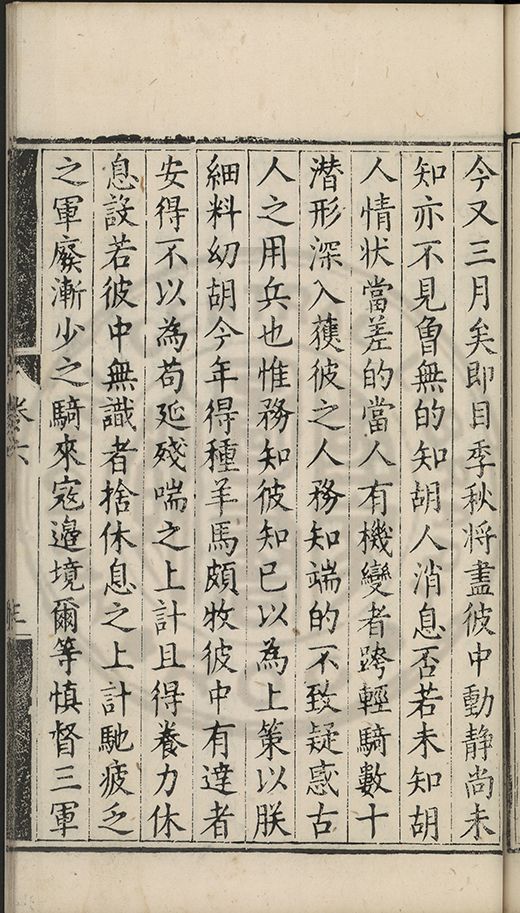 今又三月矣即目季秋将盡彼中動靜尚未
知亦不見曾無的知胡人消息否若未知胡
人情状當差的當人有機變者跨輕騎數十
潜形深入獲彼之人務知端的不致疑惑古
人之用兵也惟務知彼知已以為上策以朕
細料幼胡今年得種羊馬頗牧彼中有達者
安得不以為苟延殘喘之上計且得養力休
息設若彼中無識者捨休息之上計馳疲乏
之軍廢漸少之騎來寇邉境爾等慎督三軍
卷六